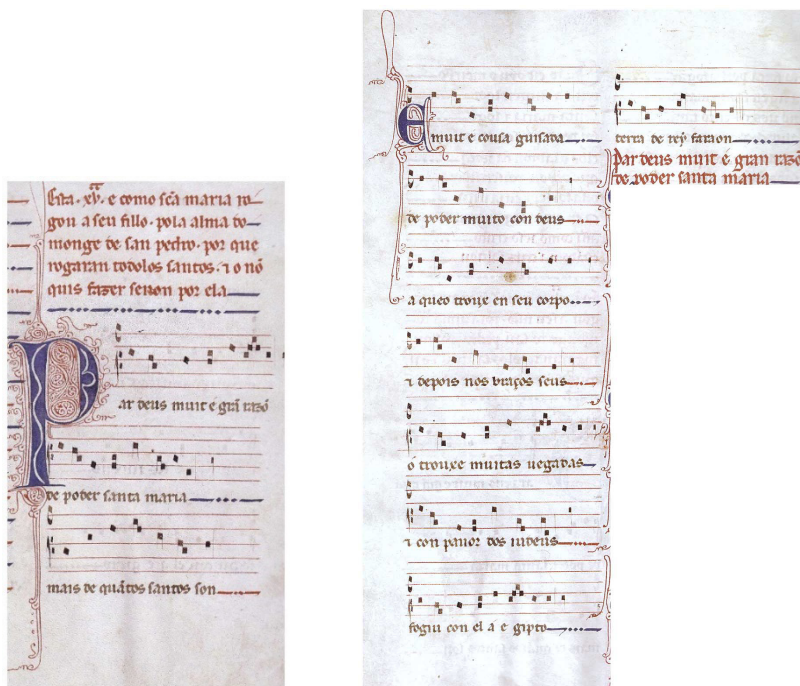 Esta · xv · e como sc̃a maria ro
gou a seu fillo · pola alma do
monge de san pedro · por que
rogaran todolos santos · ⁊ o nõ
quis fazer senon por ela
Par deus muit e grã razõ
de poder santa maria
mais de quãtos santos son
E muit e cousa guisada
de poder muito con deus
a queo trouxe en seu corpo
⁊ depois nos braços seus
ó trouxe muitas uegadas
⁊ con pauor dos iudeus
fogiu con el a e gipto
terra de rey faraon
Par deus muit é gran razõ
de poder santa maria